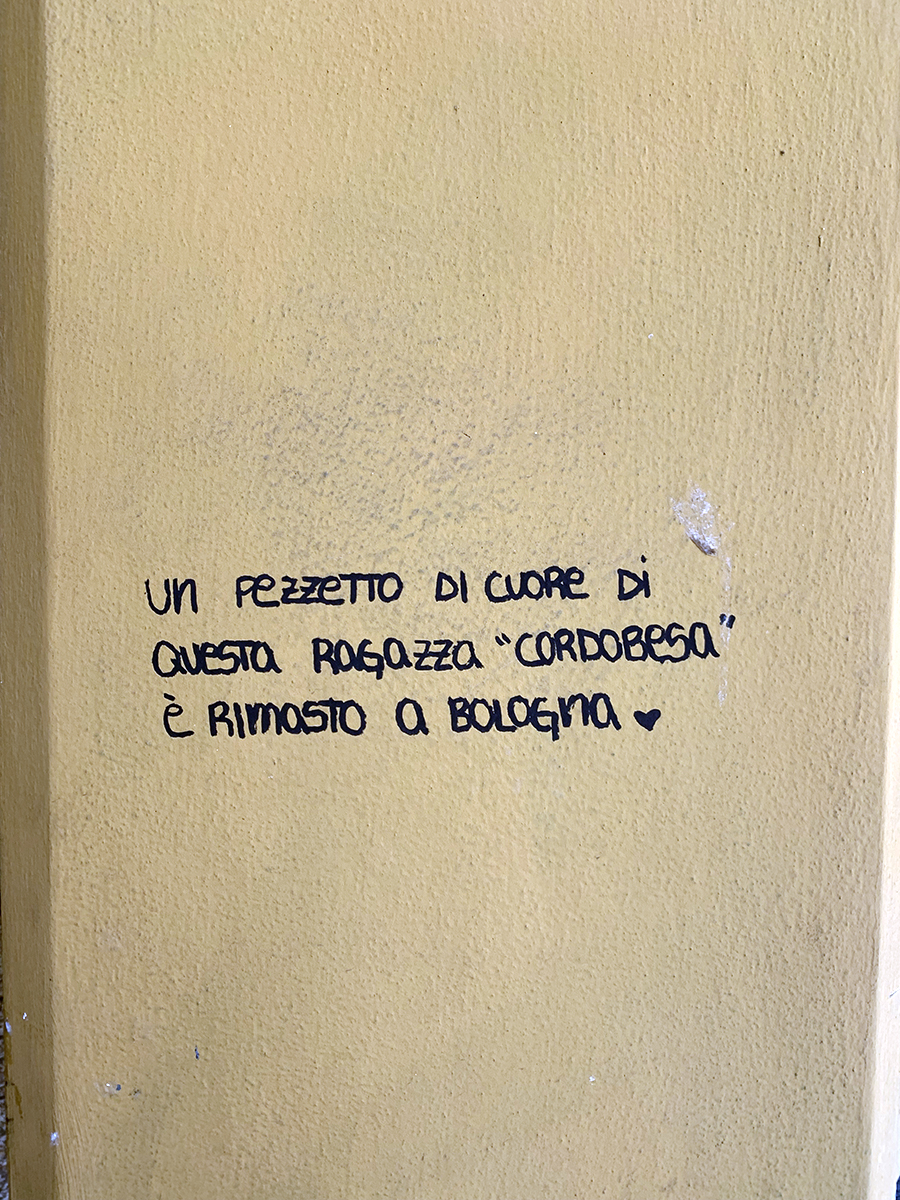 Un PeZZeTTO DI CUORe Di
QUESTa RaGaZZa “CORDOBeSa”
è RImaSTO a BOLOGna ♥